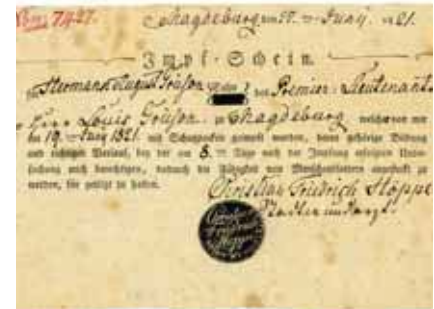 No: 7427. Magdeburg den 27. ten Juny 1821.
Impf-Schein.
Hermann August Gruson, Sohn des Premier-Lieutenants
Herr Louis Gruson zu Magdeburg welcher von mir
am 19. ten Juny 1821. mit Schutzpocken geimpft worden, deren gehörige Bildung
und richtiger Verlauf, bey der am 8. ten Tage nach der Impfung erfolgten Unter-
suchung mich berechtigen, dadurch die Fähigkeit von Menschenblattern angesteckt zu
werden, für getilgt zu halten.
Christian Friedrich Stoppe
Christian
Friedrich
Stoppe